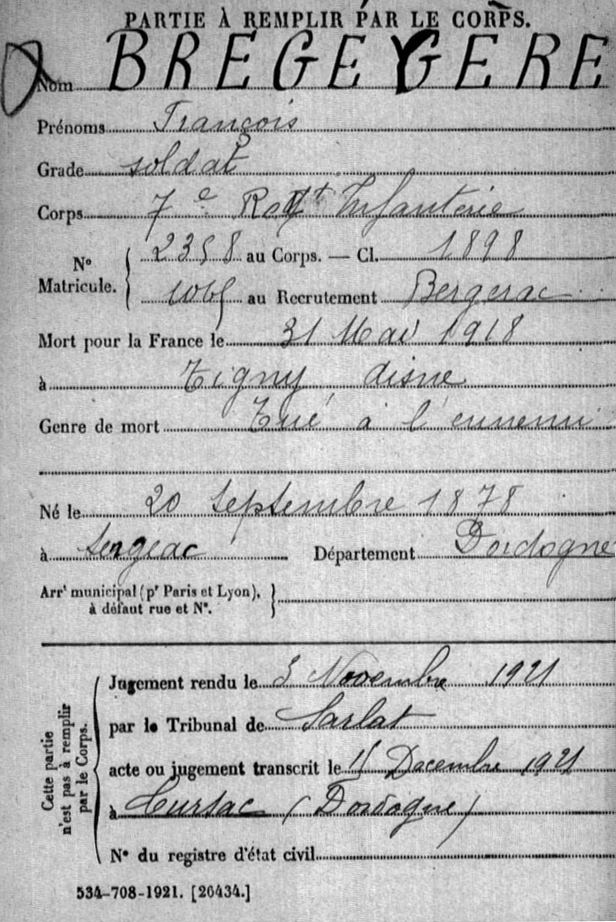 PARTIE À REMPLIR PAR LE CORPS.
Nom BREGEGERE
Prénoms François
Grade soldat
Corps 7e Regt Infanterie
N° Matricule. { 2358 au Corps. — Cl. 1898
au Recrutement Bergerac
Mort pour la France le 31 Mai 1918
à Tigny aisne
Genre de mort Tué à l'ennemi
Né le 20 Septembre 1878
à Sergeac Département Dordogne
Arrt municipal (pr Paris et Lyon), à défaut rue et N°. }
Cette partie n'est pas à remplir par le Corps.
Jugement rendu le 3 Novembre 1921
par le Tribunal de Sarlat
acte ou jugement transcrit le Decembre 1921
à Cursac (Dordogne)
N° du registre d'état civil
534-708-1921. [26434.]